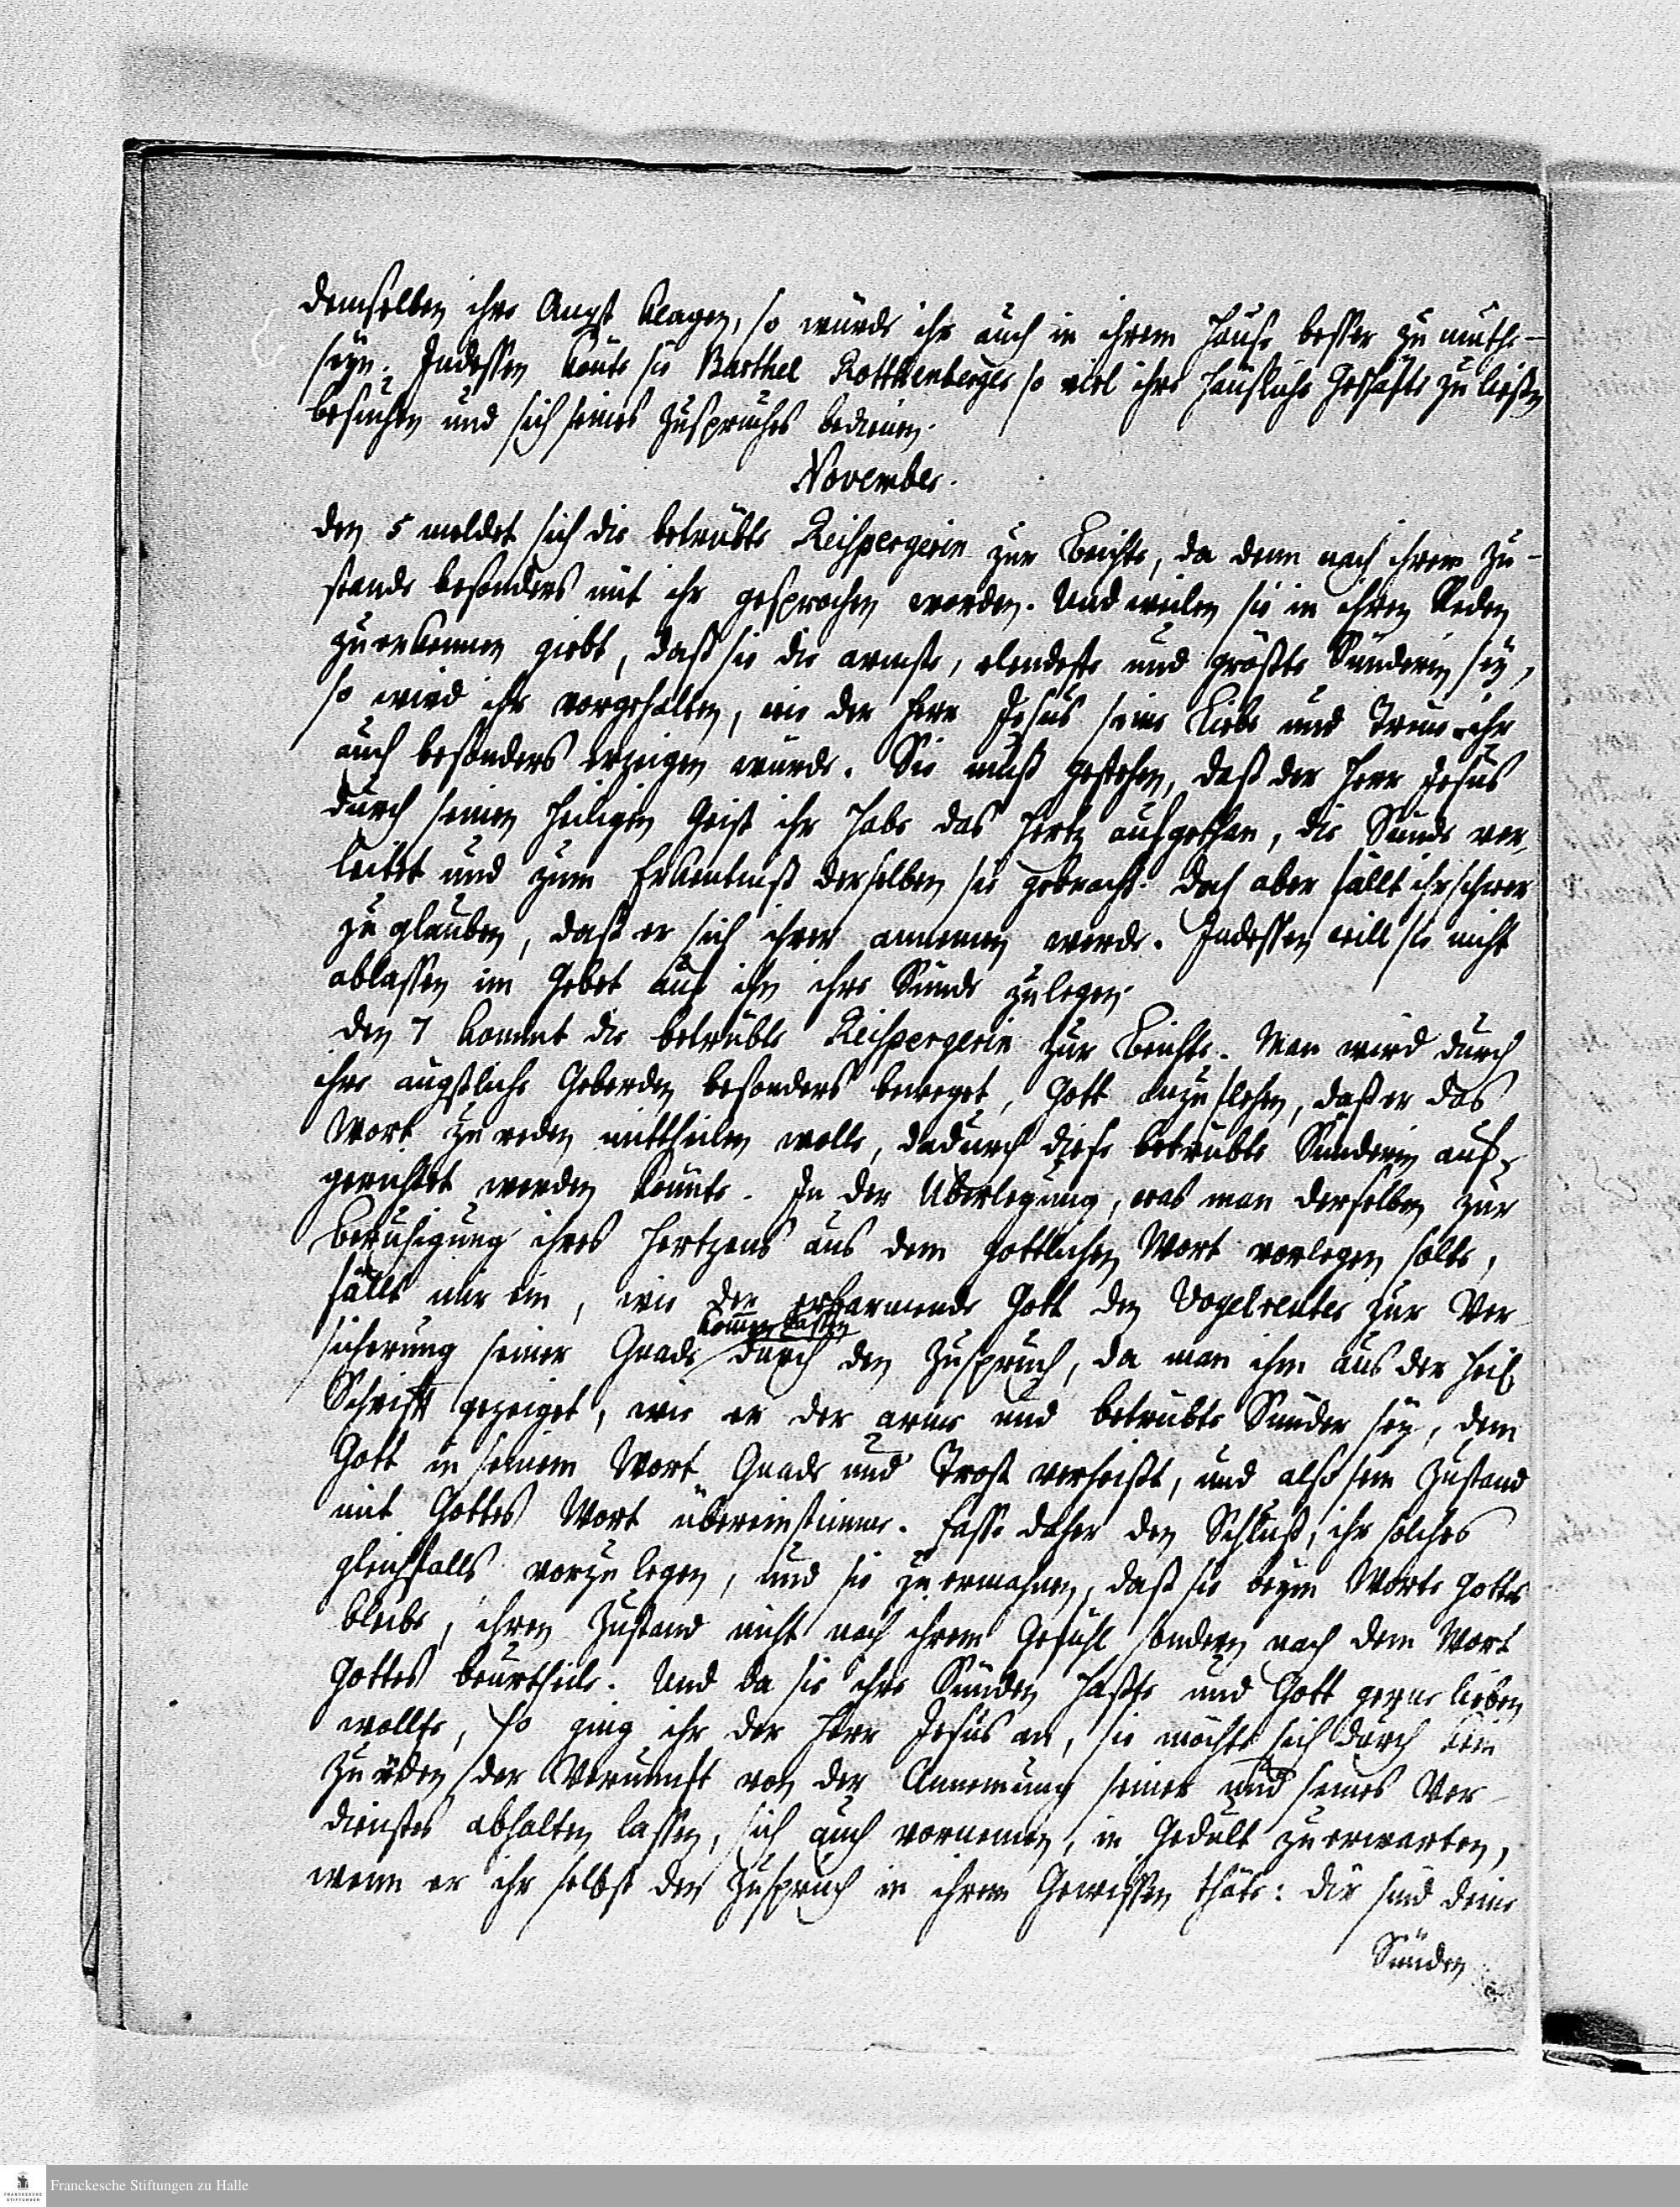 demselben ihre Angst klagen, so würde ihr auch in ihrem Hause besser zu muthe
seyn. Indessen könte sie Barthel Rotthenberger so viel ihre häusliche Geschäfte zu ließen
besuchen und sich seines Zuspruches bedienen.
November.
den 5 meldet sich die betrübte Reispergerin zur Beichte, da denn nach ihrem Zu-
stande besonders mit ihr gesprochen worden. Und weilen sie in ihren Reden
zu erkennen giebt, daß sie die armste, elendeste und größte Sünderin sey,
so wird ihr vorgehalten, wie der Herr Jesus seine Liebe und Treue ihr
auch besonders erzeigen würde. Sie muß gestehen, daß der Herr Jesus
durch seinen heiligen Geist ihr habe das Hertz aufgethan, die Sünde ver-
leitet und zum Erkentniß derselben sie gebracht. Doch aber fällt ihr schwer
zu glauben, daß er sich ihrer annemen werde. Indessen will sie nicht
ablassen im Gebet auf ihn ihre Sünde zulegen.
den 7 kommt die betrübte Reispergerin zur Beichte. Man wird durch
ihre ängstliche Geberden besonders beweget, Gott anzuflehen, daß er das
Wort zu reden mittheilen wolle, dadurch diese betrübte Sünderin auf-
gerichtet werden könnte. In der Uberlegung, was man derselben zur
Beruhigung ihres Hertzens aus dem göttlichen Wort vorlegen solte,
fällt mir ein, wie der erbarmende Gott den Vogelreuter zur Ver-
kommen laßen
sicherung seiner Gnade durch den Zuspruch, da man ihm aus der Heil.
Schrift gezeiget, wie er der arme und betrübte Sünder sey, dem
Gott in seinem Wort Gnade und Trost verheißt, und also sein Zustand
mit Gottes Wort übereinstimme. Fasse daher den Schluß, ihr solches
gleichfalls vorzulegen, und sie zu ermahnen, daß sie beym Worte Gottes
bleibe, ihren Zustand nicht nach ihrem Gefühl sondern nach dem Wort
Gottes beurtheile. Und da sie ihre Sünden haßte und Gott gerne lieben
wollte, so ging ihr der Herr Jesus an, sie möchte sich durch kein
Zureden der Vernunft von der Annemung seiner und seines Ver-
dienstes abhalten lassen, sich auch vornemen, in Gedult zu erwarten,
wenn er ihr selbst den Zuspruch in ihrem Gewissen thäte: Dir sind deine
Sünden
Franckesche Stiftungen zu Halle